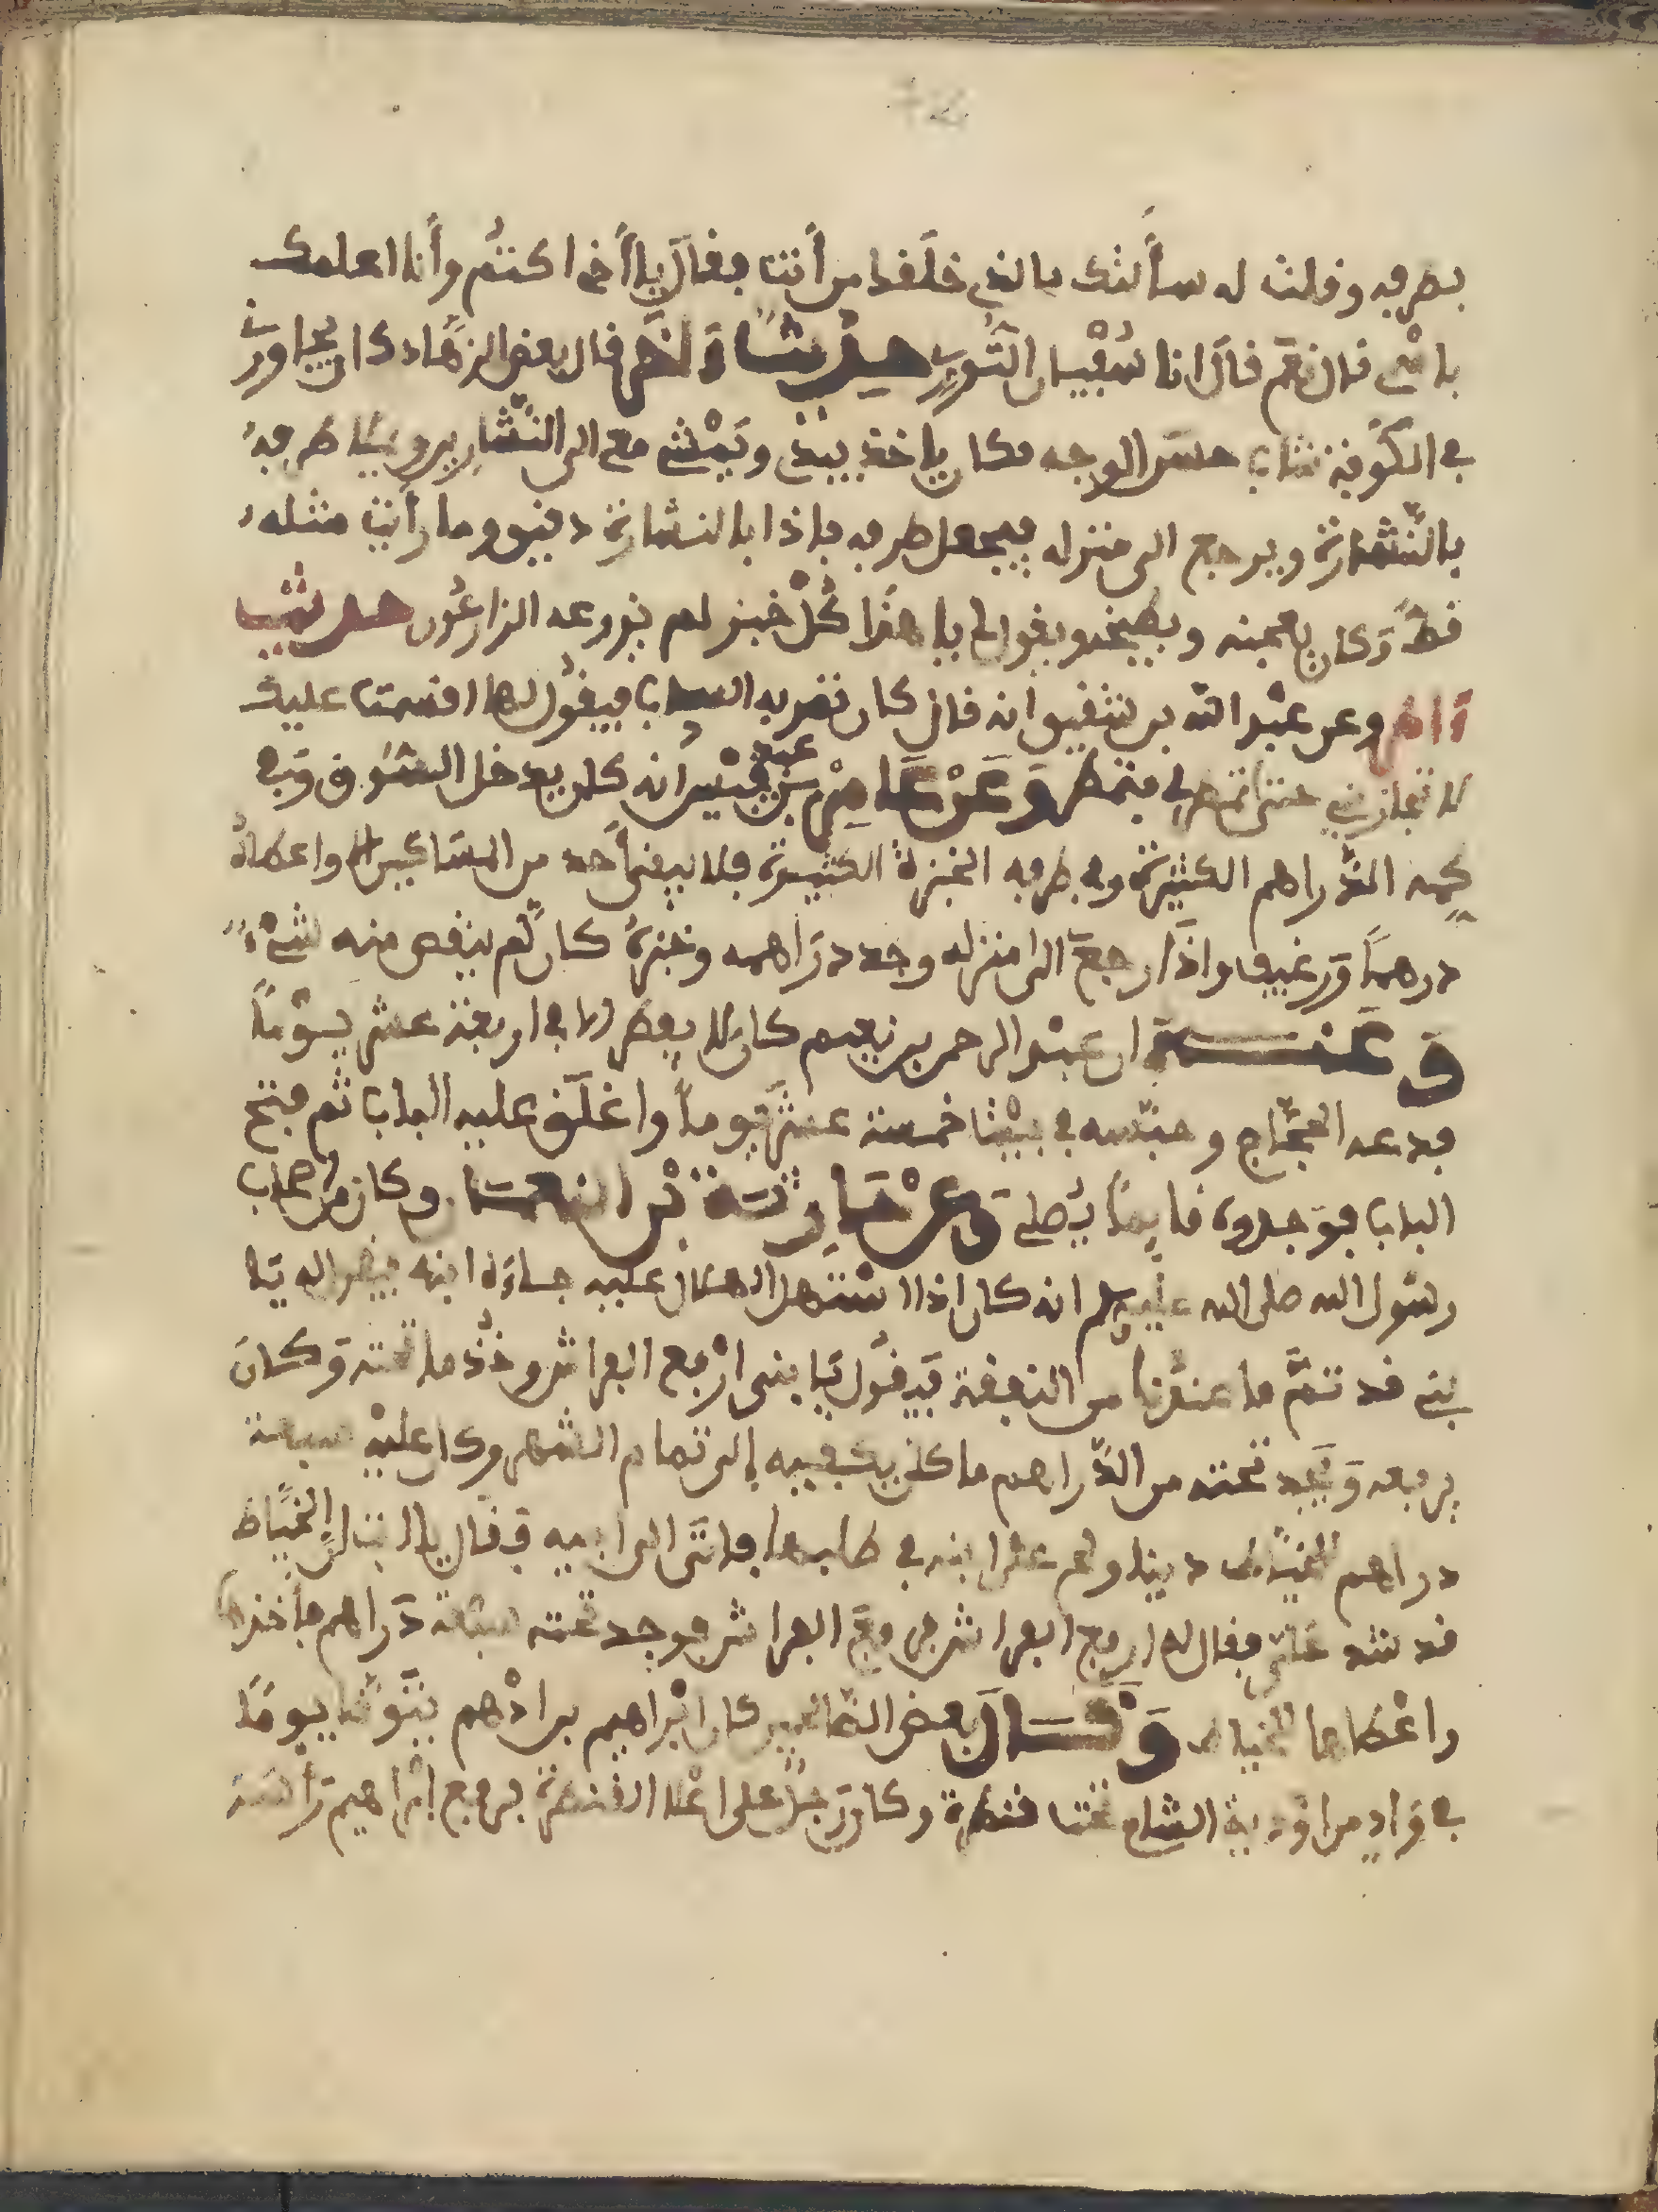 بطرفه وقلت له سألتك بالذي خلقك من أنت فقال يا أخي اكتم وأنا اعلمك
باسمي قال نعم قال انا سُفْيان الثَّوري حديث ءاخر قال بعض الزهّاد كان يجاورني
في الكُوفة شاب حسن الوجه فكان ياخذ بيدي ويَمْشي معي الى النَّشّارين ويملأ طرفه
بالنّشارة ويرجع الى منزله فيجعل طرفه فاذا بالنشارة دقيق وما رأيت مثله
قطّ وَكان يعجنه ويطبخه ويقول لي يا هذا كُلْ خبز لم يزرعه الزارعُون حديث
ءاخر وعن عبْد الله بن شقيق انه قال كان تمر به السحاب فيقُول لها اقسمت عليك
لا تجاوزيني حتى تمطري فتمطر وَعَنْ عَامِر بن عبد قيْس أنه كان يدخل السُّوق وَفي
كمه الدَّراهم الكثيرة وفي طرفه الخبزة الكثيرة فلا يبقى أحد من المسَاكين الا واعطاهُ
درهمًا وَرغيف واذَا رجعَ الى منزله وجد دراهمه وخبزهُ كان لم ينقص منه شَيْءٌ
وَعَنه ان عبْد الرحمن بن نعيم كان لا يفطر الا في اربعة عشر يوْمًا
فدعه الحجّاج وحبسه في بيْت خمسة عشر يومًا واغلق عليه الباب ثم فتح
الباب فوَجدوه قايمًا يُصلي وعن حَارثة بْن النعمان وكان من اصحاب
رسُول الله صلى الله عليه وسلم انه كان اذا اسْتهل الهلال عليه جاءَه ابنه فيقول له يا
بني قد تمَّ ما عندنا من النفقة فيَقُول يَا بني ارْفع الفراش وخُذ ما تحته وَكانَ
يرفعه وَيَجد تحته من الدَّراهم ما كان يكفيه إلى تمام الشّهر وكان عليْه سبعة
دراهم للخيّاط دينا ولم على ابنه في طلبها فاتَى الى ابيه وَقال يا ابت ان الخيَّاط
قد شد عليّ فقال له ارفع الفراش فرفعَ الفراش فوجد تحته سبعة دَراهم فأخذها
واعْطاها للخياط وَقَال بعض الصّالحين كان ابْراهيم بن ادْهم يتوَضّأ يوْمًا
في وَادٍ من اوْدية الشام تحت قنطرة وكان رَجلٌ على اعْلا القنطرة فرفع إبْراهيم رَأسه